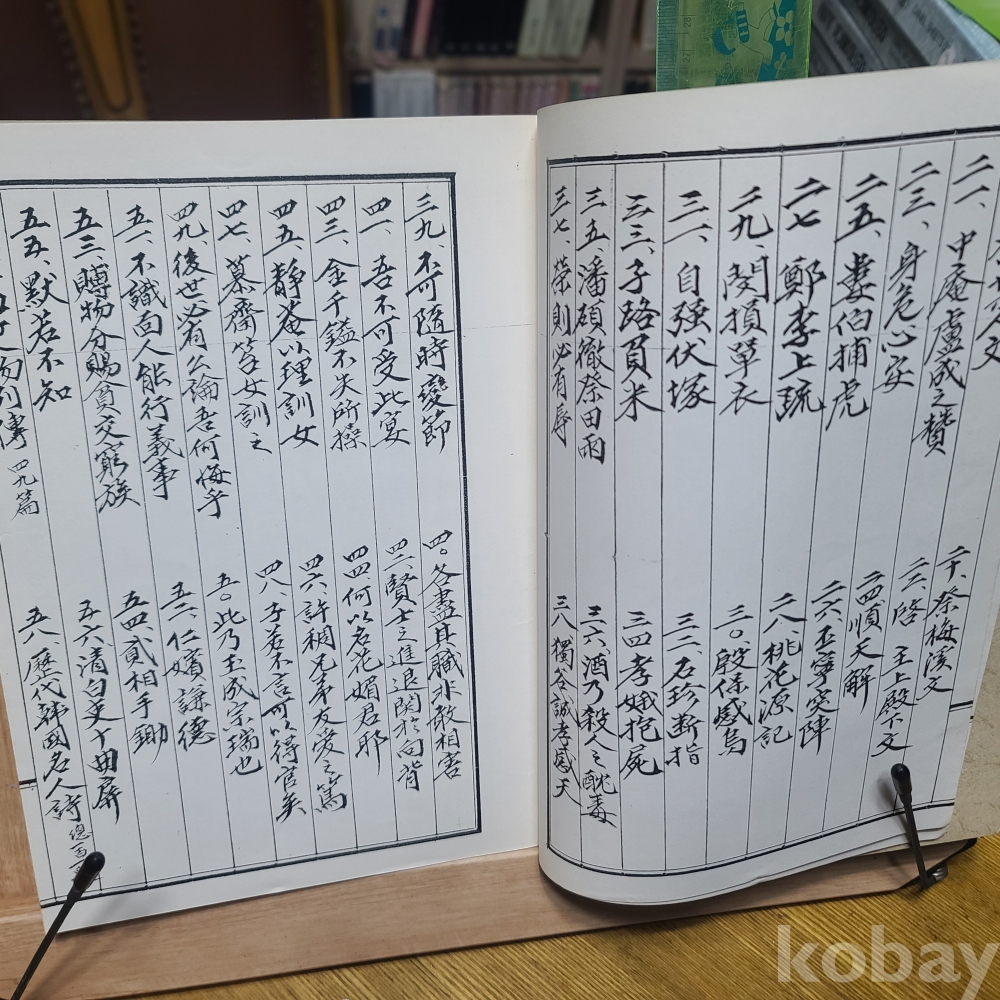 二一、中庵盧成之贊
二十、祭梅溪文
二三、身危心安
二二、啓 主上殿下文
二五、婁伯捕虎
二四 順天解
二七 鄭李上疏
二六 玉寧突陣
二九、閔損單衣
二八、桃花源記
三一、自强伏塚
三〇、殷保感烏
三三、子路負米
三二、石珍斷指
三五 潘碩徹祭田雨
三四 孝娥抱屍
三七、榮則必有辱
三六、酒乃殺人之酖毒
三八 獨谷誠孝感天
三九、不可隨時變節
四〇、各盡其職非敢相害
四一、吾不可受此宴
四二、賢士之進退関於向背
四三、金千鎰不失所操
四四、何以名花媚君耶
四五、靜菴以理訓女
四六、許稠兄弟友愛之篤
四七、慕齋筓女訓之
四八、子若不言可以得官矣
四九、後世必有公論吾何悔乎
五〇 此乃玉成宗瑞也
五一、不識面人能行義事
五二、仁嬪謙德
五三、賻物分賜貧交窮族
五四 貳相手鋤
五五、默若不知
五六 清白吏十曲屛
列傳 四九篇
五八 歷代韓國名人詩 總百
kobay